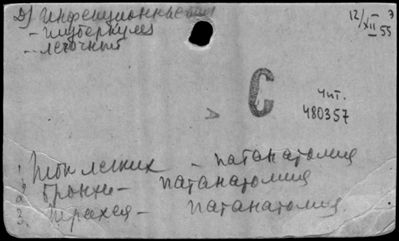 Д) Инфекционные
- туберкулез
- легочный
12/XII 55
С
Чит.
480357
Ток легких - патанатомия
Бронхи - патанатомия
Трахея - патанатомия